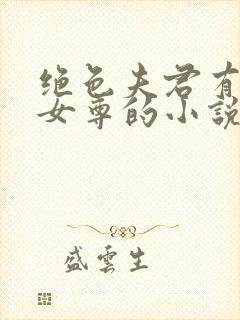 绝色夫君有
女尊的小説
盛雲生